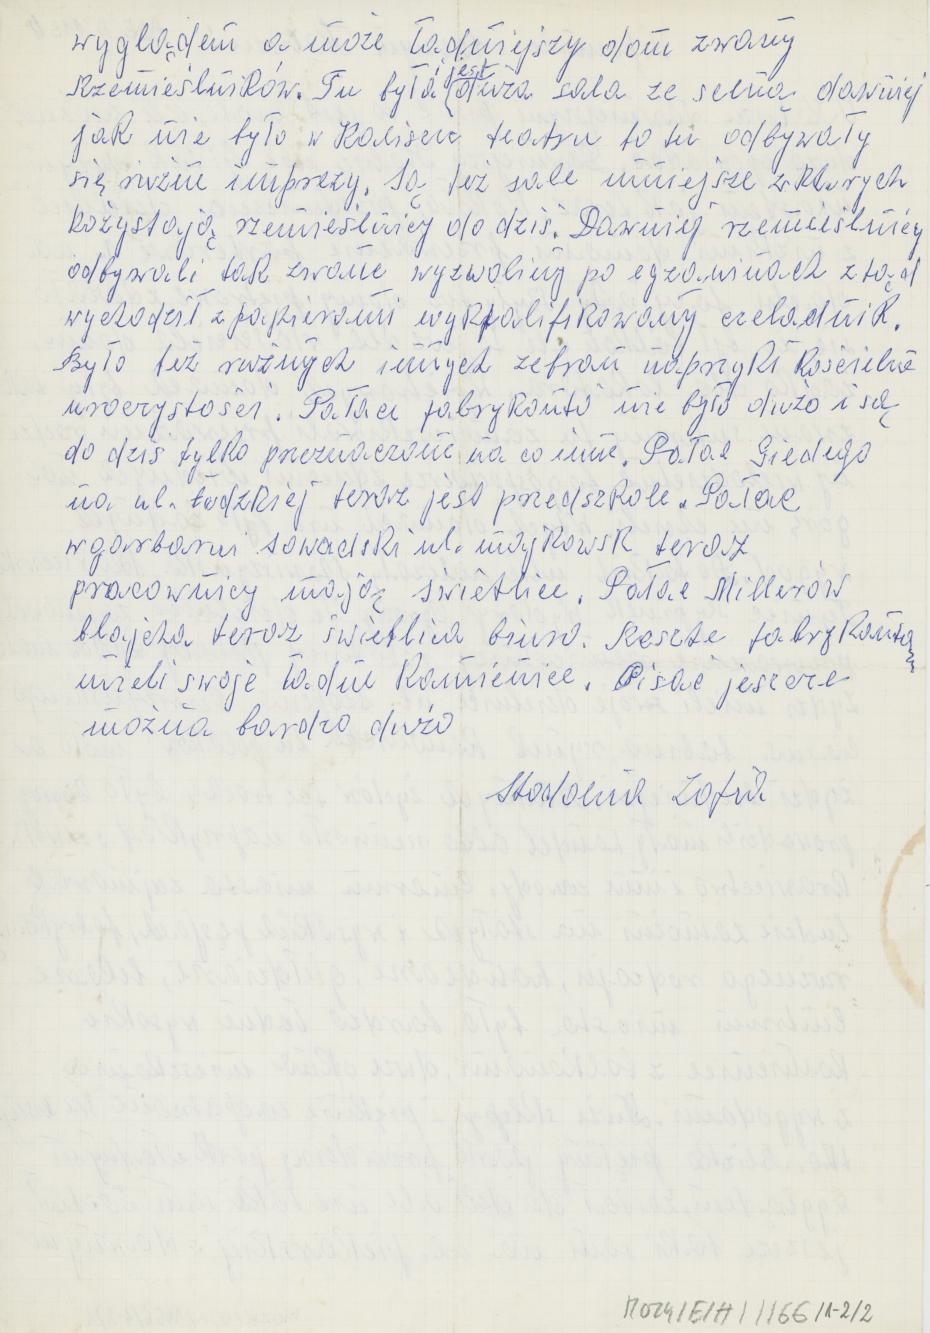 wyglądem a może ładniejszy dom zwany
Rzemieślników. Tu była i jest duża sala ze sceną dawniej
jak nie było w Kaliszu teatru to tu odbywały
się rużne imprezy. Są też sale mniejsze z kturych
kożystają rzemieślnicy do dziś. Dawniej rzemieślnicy
odbywali tak zwane wyzwoliny po egzaminach z tąd
wychodził z papierami wykfalifikowany czeladnik.
Było też rużnych innych zebrań naprzykł kościelne
uroczystości. Pałace fabrykantó nie było dużo i są
do dziś tylko przeznaczone na co inne. Pałac Giedego
na ul. Łódzkiej teraz jest przedszkole. Pałac
w garbarni Sowadski ul. majkowsk teraz
pracownicy mają świetlice. Pałac Millerów
blajcha teraz świetlica biura. Reszte fabrykanta
mieli swoje ładne Kamienice. Pisać jeszcze
można bardzo dużo
Stodolna Zofia
MOZK/E/A/1/166/1-2/2